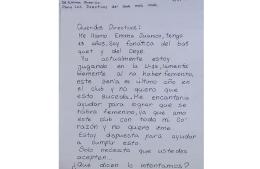 Para los Directivos del club
Queridos Directivos:
Me llamo Emma Juanco, tengo
13 años. Soy fanática del bas
quet y del Depe.
Yo actualmente estoy
jugando en la U-13, lamenta
blemente al no haber femenino,
este sería mi último año en
el club y no quiero que
esto suceda. Me encantaría
ayudar para lograr que se
abra femenino, ya que amo
este club con todo mi co-
razón y no quiero irme
Estoy dispuesta para ayudar
a cumplir esto.
Solo necesito que ustedes
acepten...
¿Qué dicen lo intentamos?